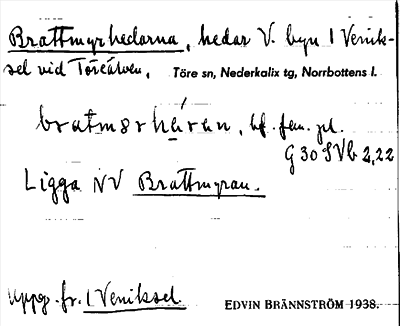 Brattmyrhedarna, hedar V. byn 1 Venik-
sel vid Töreälven. Töre sn, Nederkalix tg, Norrbottens l.
bratmørhǽran, bf. fem. pl.
G 30 SVb 2,22
Ligga NV Brattmyran.
Uppg. fr. 1 Veniksel
EDVIN BRÄNNSTRÖM 1938.